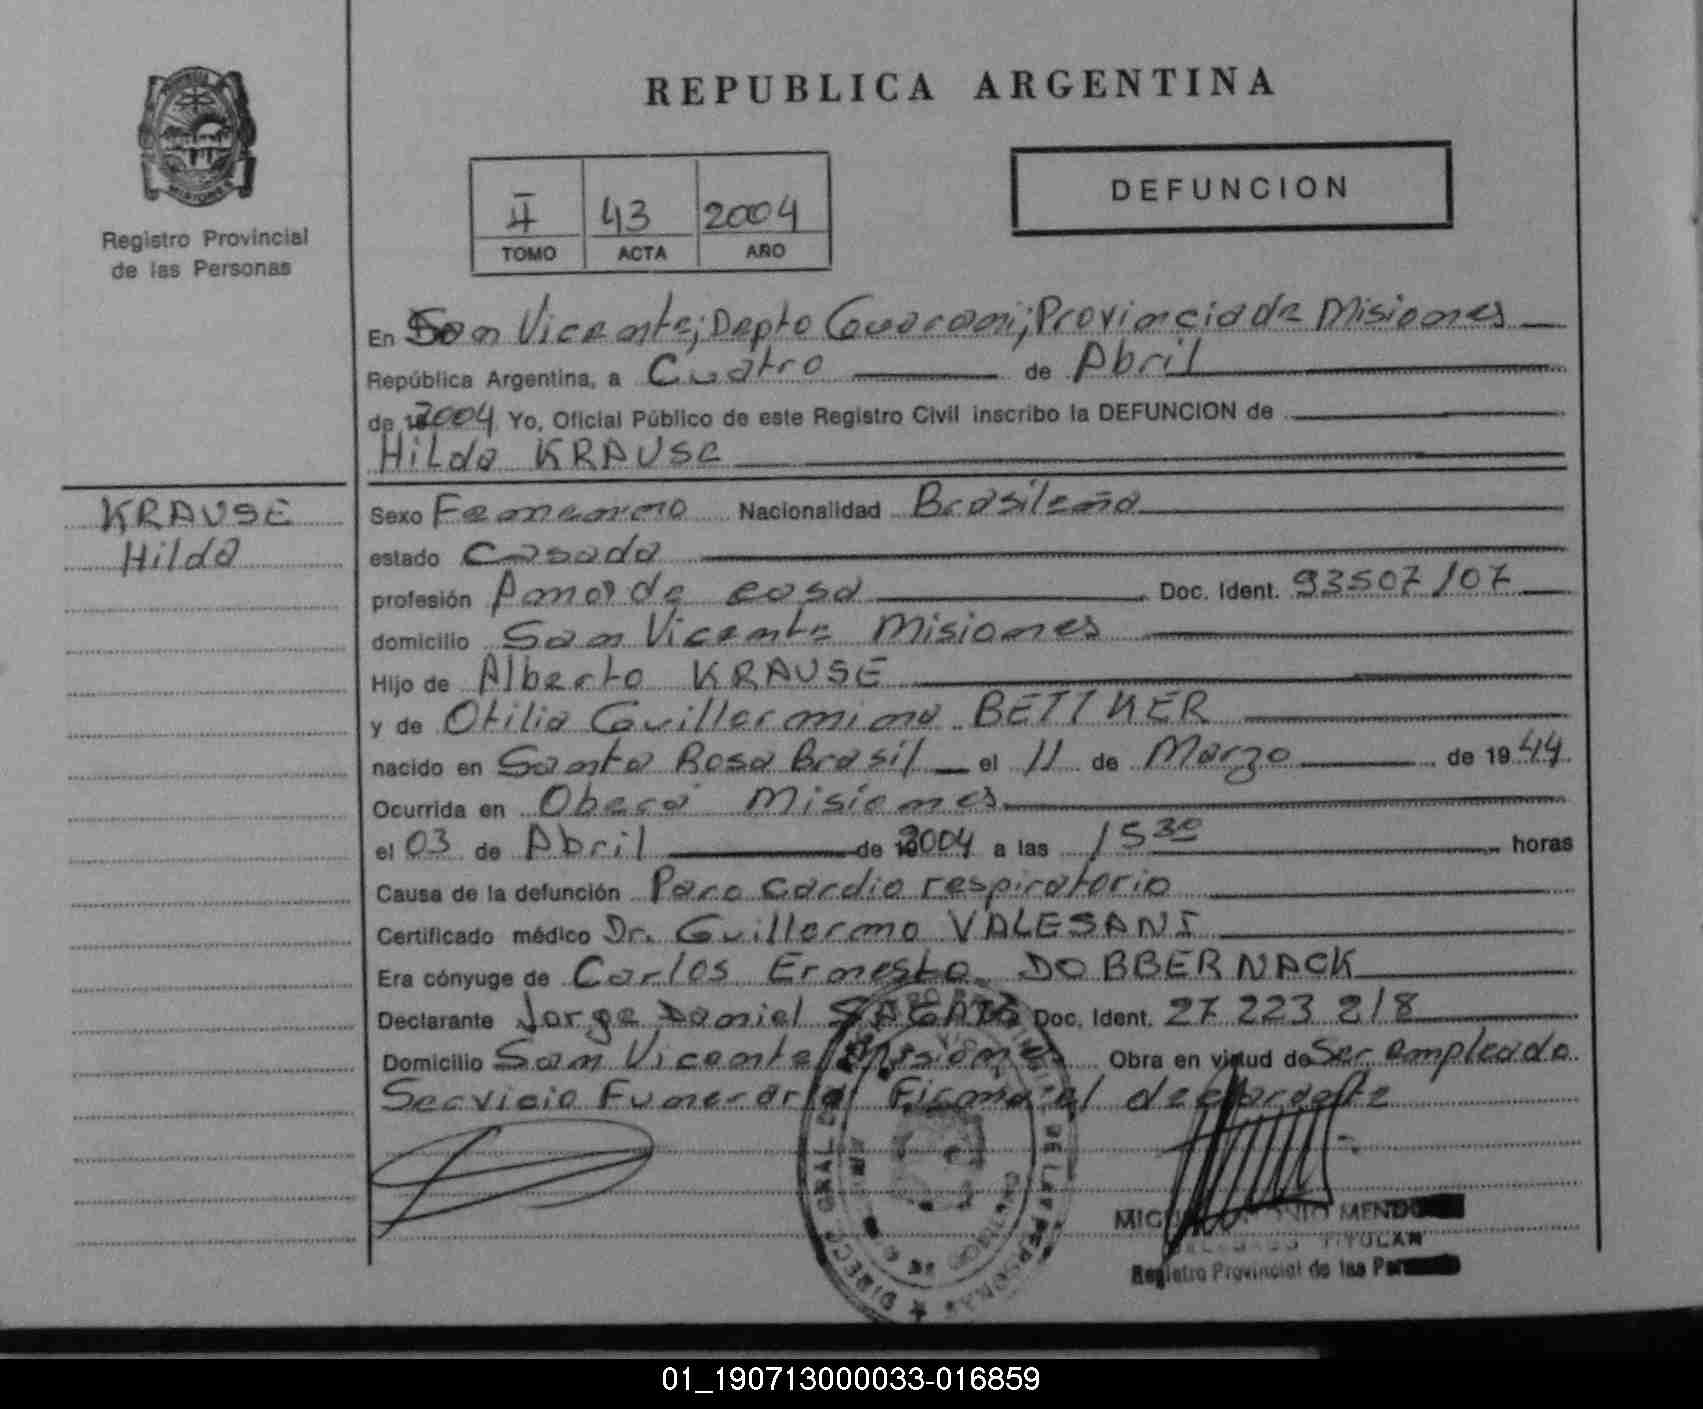 REPUBLICA ARGENTINA
DEFUNCION
Registro Provincial
de las Personas
II 43 2004
TOMO ACTA AÑO
En San Vicente; Depto Guarani; Provincia de Misiones
República Argentina, a Cuatro de Abril
de 2004 Yo, Oficial Público de este Registro Civil inscribo la DEFUNCION de
Hilda KRAUSE
KRAUSE
Hilda
Sexo Femenino Nacionalidad Brasileña
estado Casada
profesión Ama de casa Doc. Ident. 93507107
domicilio San Vicente Misiones
Hijo de Alberto KRAUSE
y de Otilia Guillermina BETTKER
nacido en Santa Rosa Brasil el 11 de Marzo de 1944
Ocurrida en Oberá Misiones
el 03 de Abril de 2004 a las 15 30 horas
Causa de la defunción Paro cardio respiratorio
Certificado médico Dr. Guillermo VALESANI
Era cónyuge de Carlos Ernesto DOBBERNACK
Declarante Jorge Daniel Doc. Ident. 27 223 218
Domicilio San Vicente Misiones Obra en virtud de Ser empleado
Servicio Funerario Firma el declarante
MIGUEL ANTONIO
TITULAR
Registro Provincial de las
01_190713000033-016859